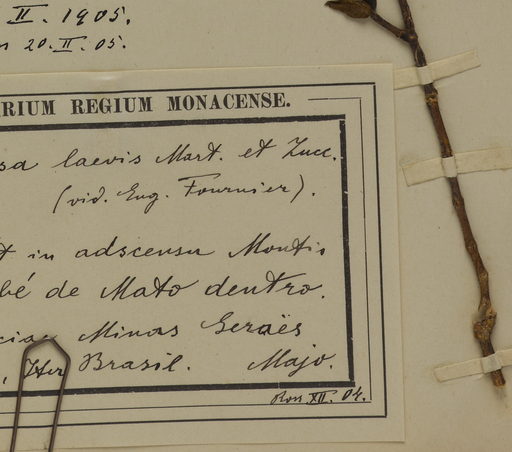 II. 1905.
20.II.05.
RIUM REGIUM MONACENSE.
sa laevis Mart. et Zucc.
(vid. Eug. Fournier).
t in adscensu Montis
bé de Mato dentro.
ciae Minas Geraës
Iter Brasil. Majo.
Ross XII. 04.